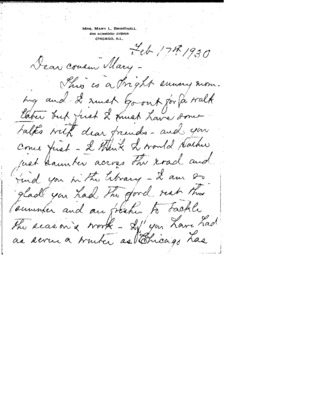 MRS. MARY L.
CHICAGO, ILL.
Feb 17th 1930
Dear cousin Mary -
This is a bright sunny morn-
ing and I must go out for a walk
later but first I must have some
talks with dear friends - and you
come first - I think I would rather
just saunter across the road and
find you in the library - I am so
glad you had the good rest this
summer and are fresher to tackle
the season's work - If you have had
as severe a winter as Chicago has